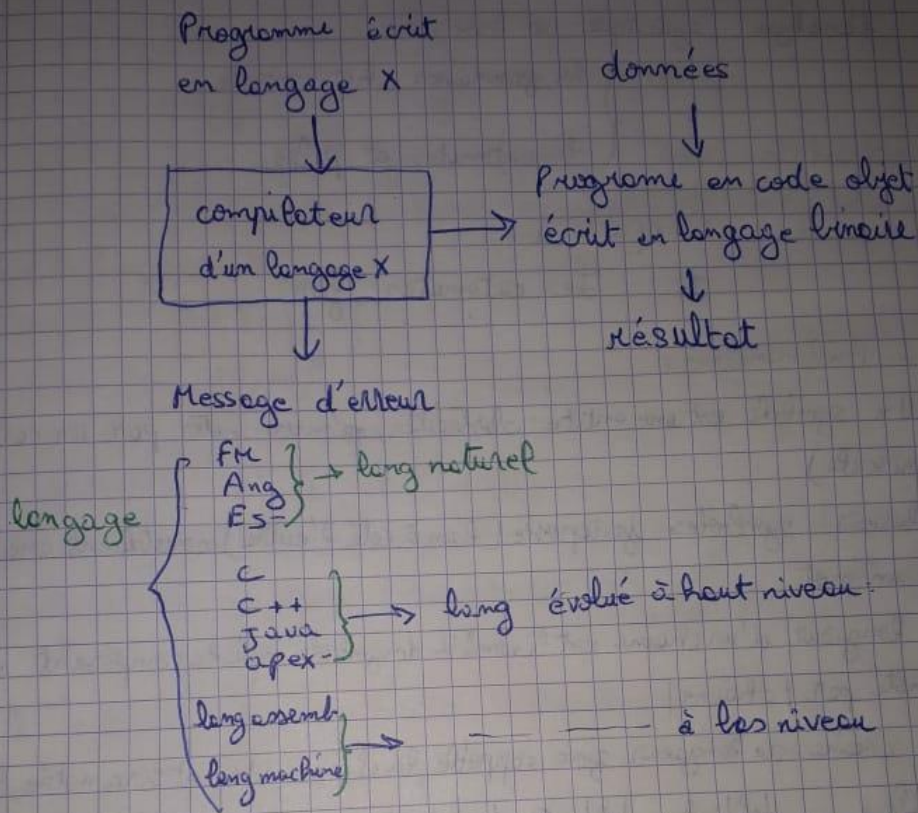 Programme écrit
en langage X
données
compilateur
d'un langage X
Programe en code objet
écrit en langage binaire
résultat
Message d'erreur
langage
Fr
Ang
Es-
→ lang naturel
C
C++
Java
apex-
→ lang évolué à haut niveau.
lang assemb
lang machine
→ — — à bas niveau